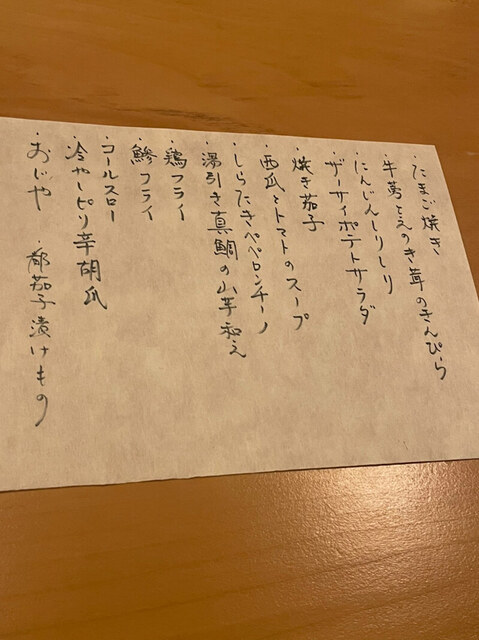 ・たまご焼き
・牛蒡とえのき茸のきんぴら
・にんじんしりしり
・ザーサイポテトサラダ
・焼き茄子
・西瓜とトマトのスープ
・しらたきペペロンチーノ
・湯引き真鯛の山芋和え
・鶏フライ
・鯵フライ
・コールスロー
・冷やしピリ辛胡瓜
・おじや ・都茄子漬けもの